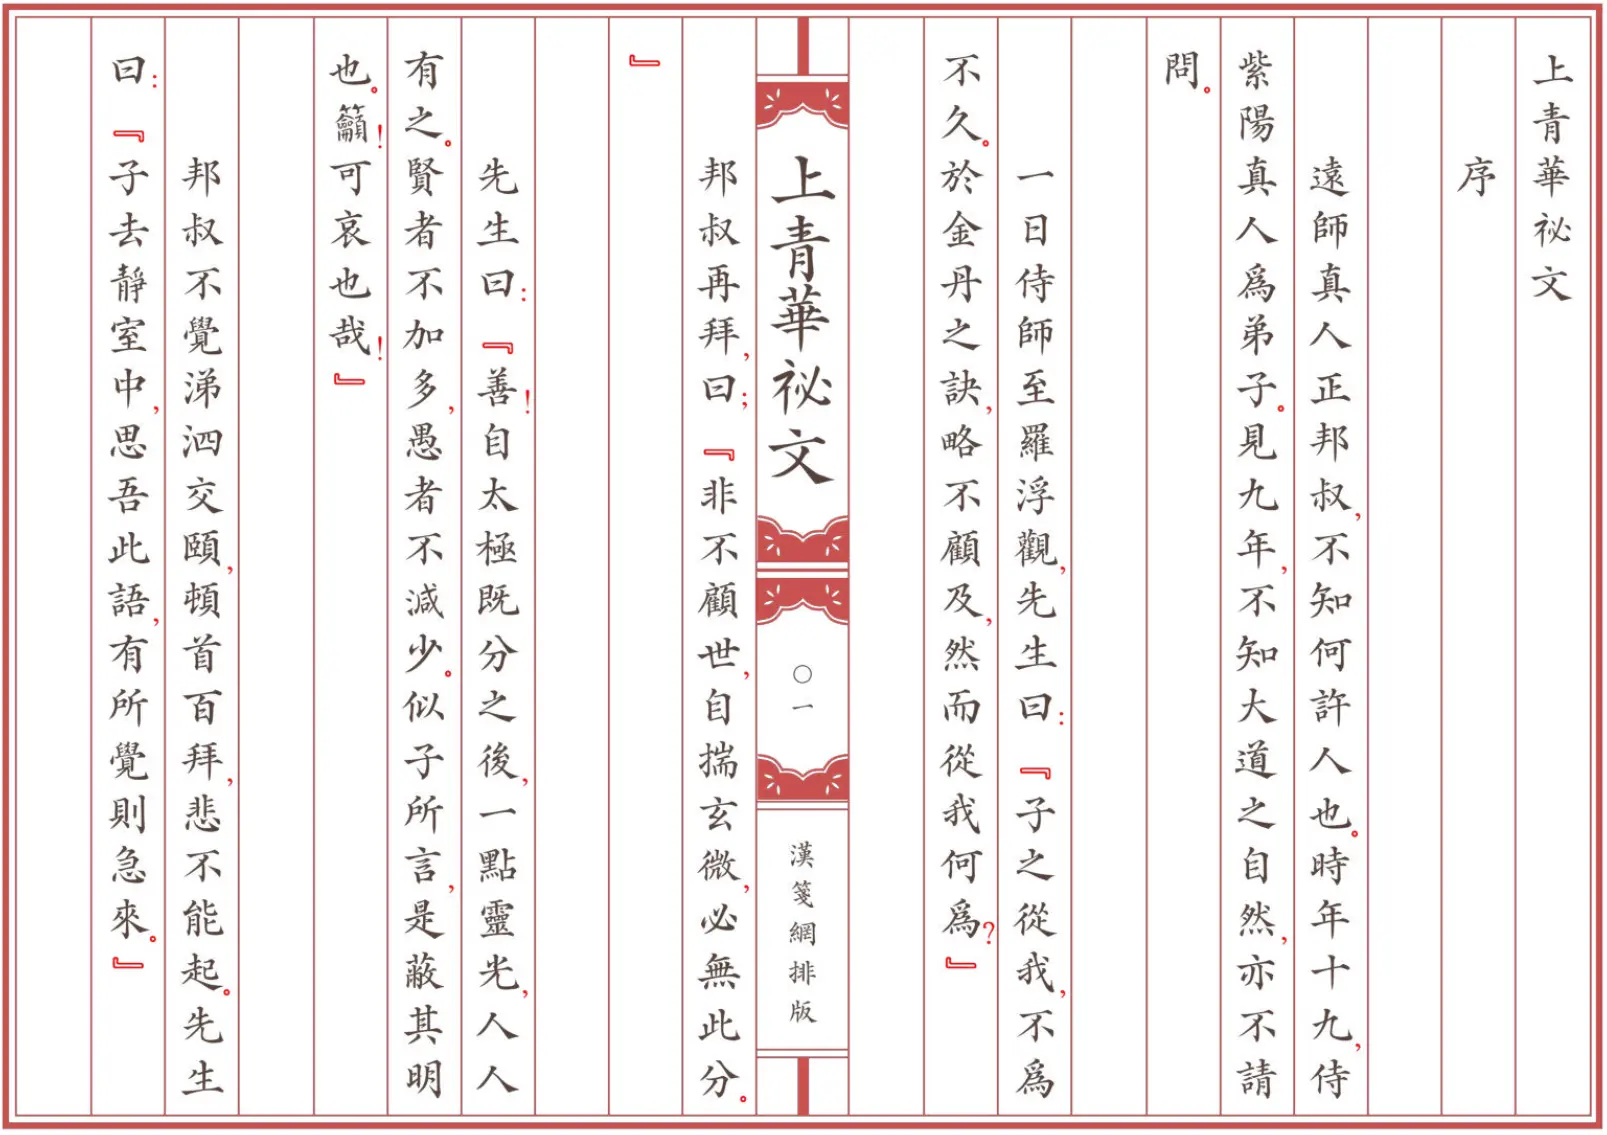 上青華祕文
序
遠師真人正邦叔，不知何許人也。時年十九，侍
紫陽真人爲弟子。見九年，不知大道之自然，亦不請
問。
一日侍師至羅浮觀，先生曰：『子之從我，不爲
不久。於金丹之訣，略不顧及，然而從我何爲？』
上青華祕文
〇一
漢箋網排版
邦叔再拜，曰；『非不顧世，自揣玄微，必無此分。
』
先生曰：『善！自太極既分之後，一點靈光，人人
有之。賢者不加多，愚者不減少。似子所言，是蔽其明
也。籲！可哀也哉！』
邦叔不覺涕泗交頤，頓首百拜，悲不能起。先生
曰：『子去靜室中，思吾此語，有所覺則急來。』